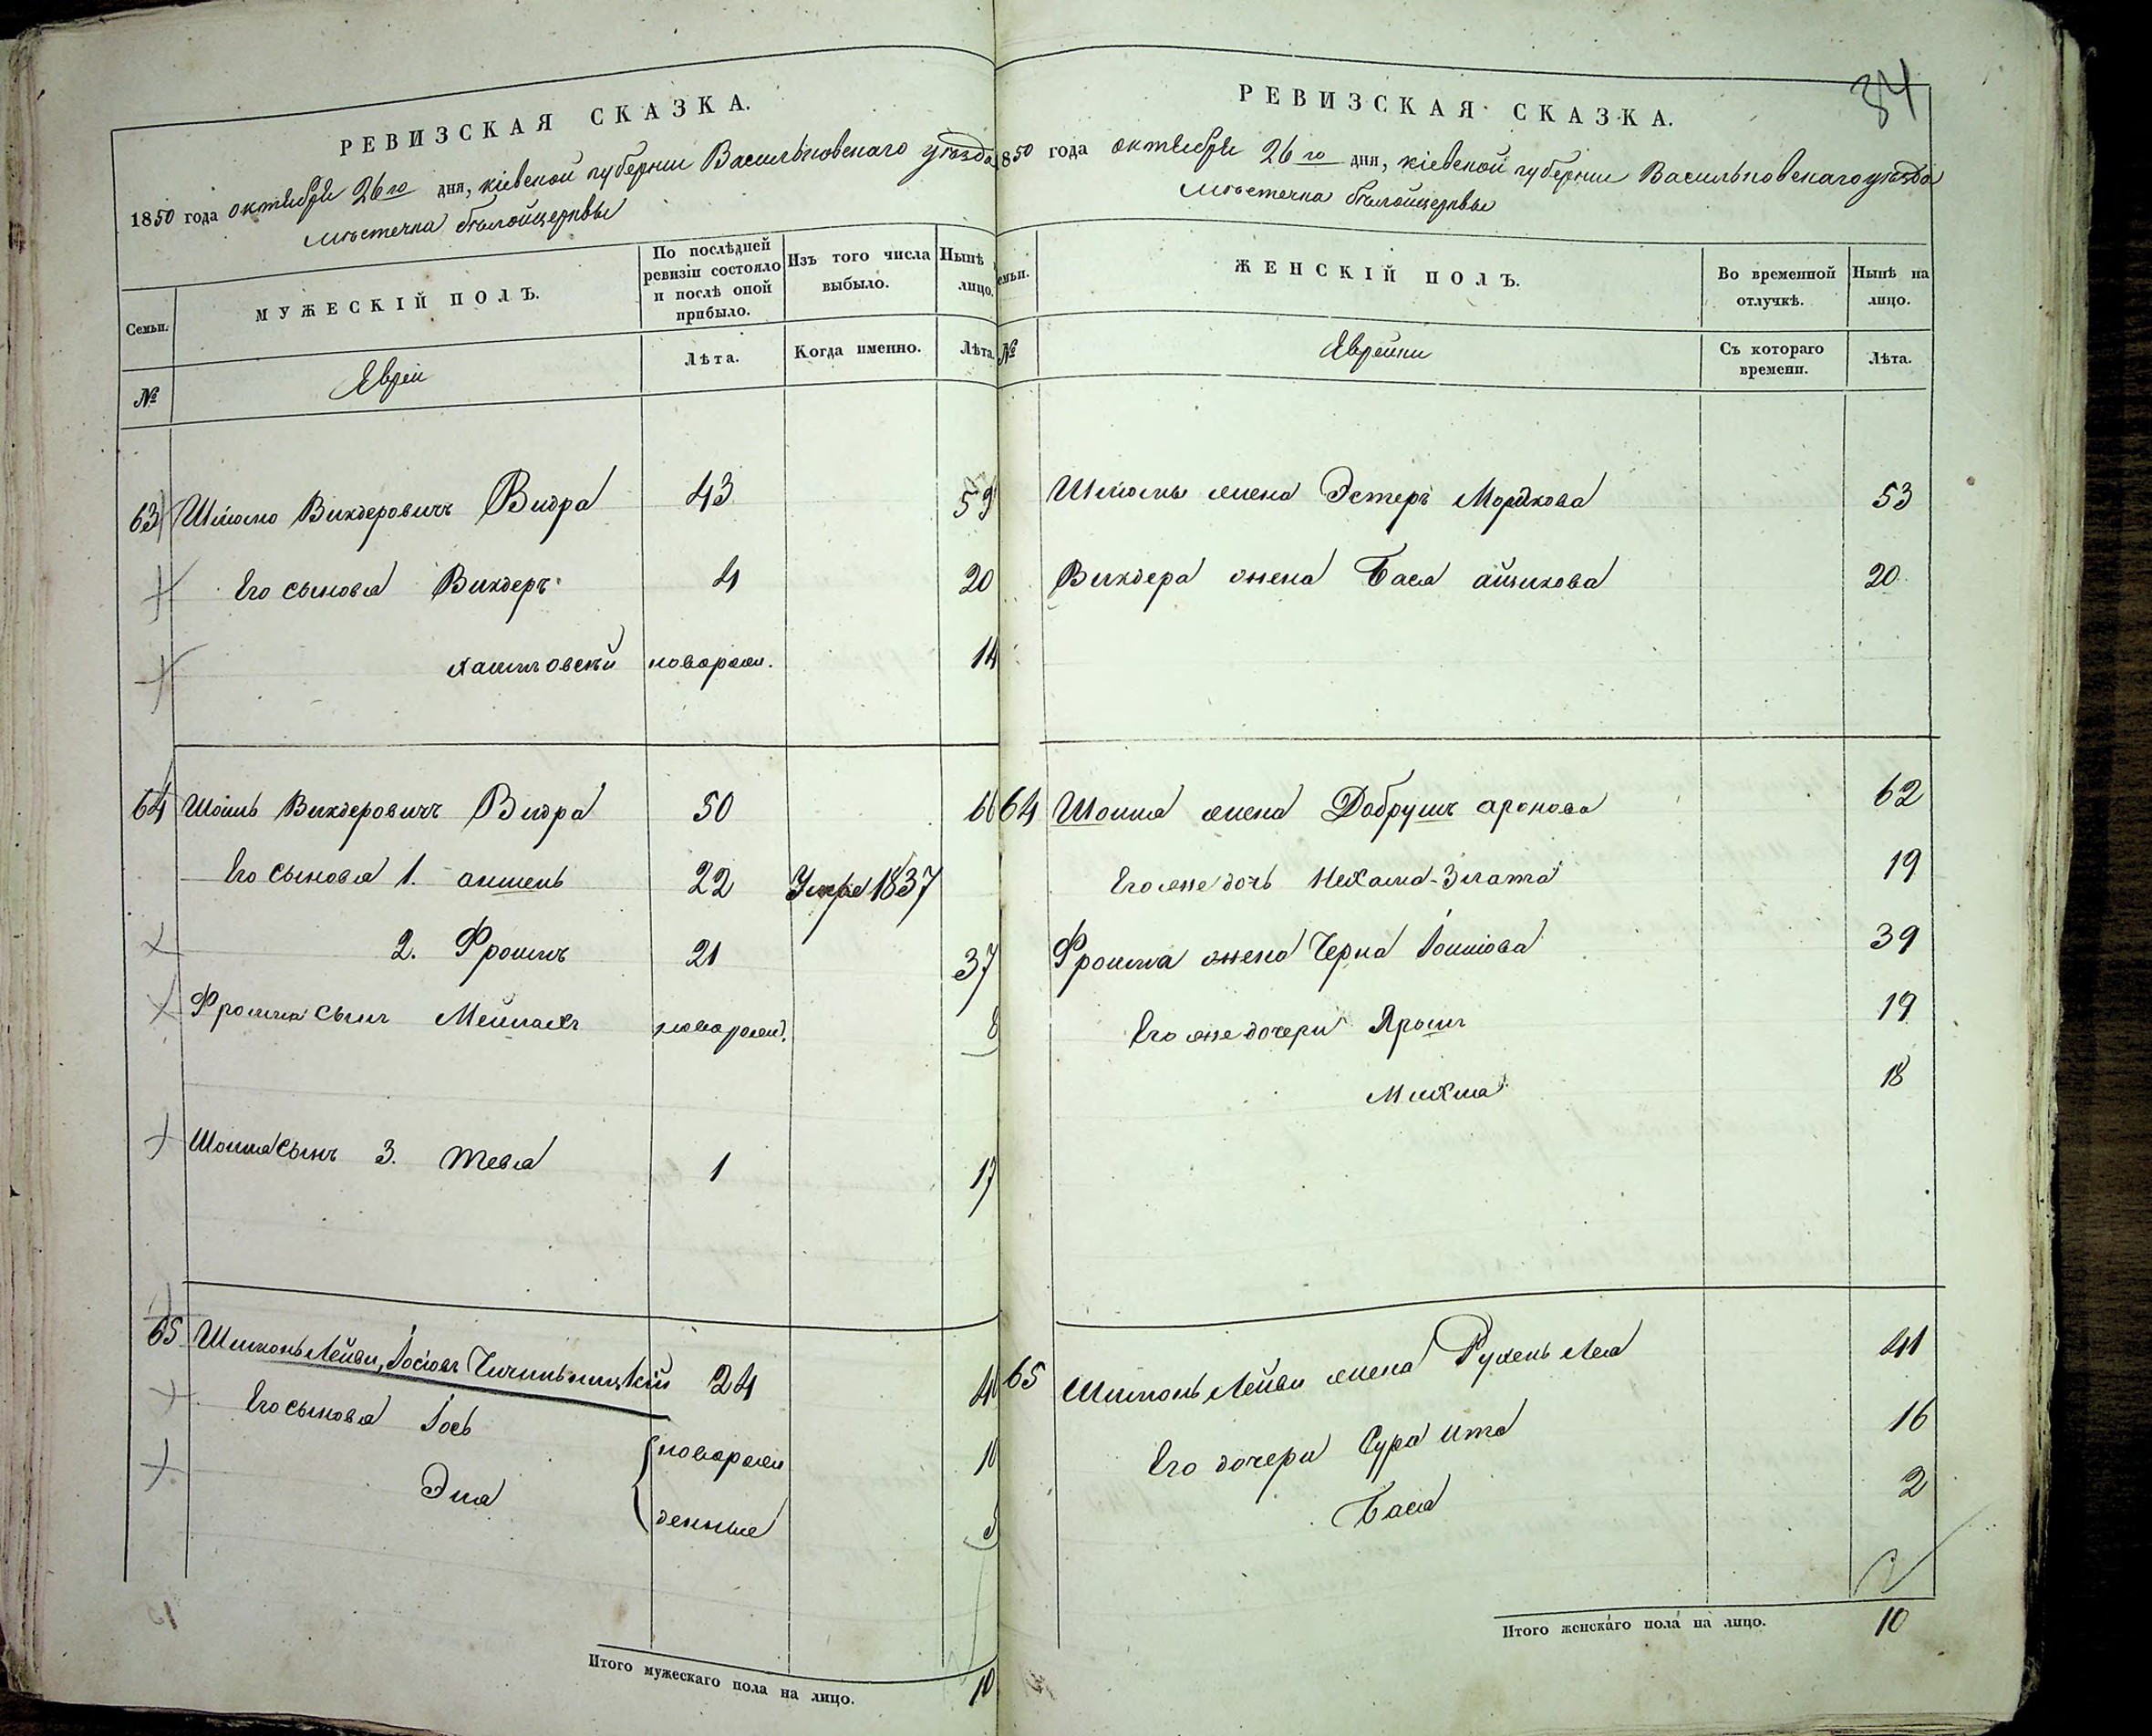 РЕВИЗСКАЯ СКАЗКА.
1850 года октября 26го дня, кіевской губерніи Васильковскаго уѣзда
мѣстечка бѣлойцерквы
Семьи.
МУЖЕСКІЙ ПОЛЪ.
По послѣдней ревизіи состояло и послѣ оной прибыло.
Изъ того числа выбыло.
Нынѣ лицо.
№
Евреи
Лѣта.
Когда именно.
Лѣта.
63 Шлиома Викдеровичъ Видра 43 59
Его сыновья Викдеръ 4 20
новорож. 14
64 Шоилъ Викдеровичъ Видра 50 66
Его сыновья 1. аншель 22 Умре 1837
2. Фроимъ 21 37
Фроима сынъ Мейлахъ новорожд. 8
Шоила сынъ 3. Тевя 1 17
65 Шимонь Лейви, Іосіовъ 24 40
Его сыновья Іось новорож 10
Эля денные 5
Итого мужескаго пола на лицо. 10
34
РЕВИЗСКАЯ СКАЗКА.
1850 года октября 26го дня, кіевской губерніи Васильковскаго уѣзда
мѣстечка бѣлойцерквы
Семьи.
ЖЕНСКІЙ ПОЛЪ.
Во временной отлучкѣ.
Нынѣ на лицо.
№
Еврейки
Съ котораго времени.
Лѣта.
Шліомы жена Эстеръ Мордкова 53
Викдера жена Бася айзикова 20
64 Шоила жена Добрушъ аронова 62
Его же дочь Нехама-Злата 19
Фроима жена Черна Іошіова 39
Его же дочери 19
Михля 18
65 Шимонь Лейви жена Рухель Лея 41
Его дочери Сура Ита 16
Бася 2
Итого женскаго пола на лицо. 10